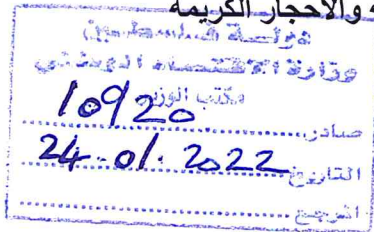 والأحجار الكريمة
دولة فلسطين
وزارة الاقتصاد الوطني
مكتب الوزير
صادر: 10920
التاريخ: 24-01-2022
المرجع: